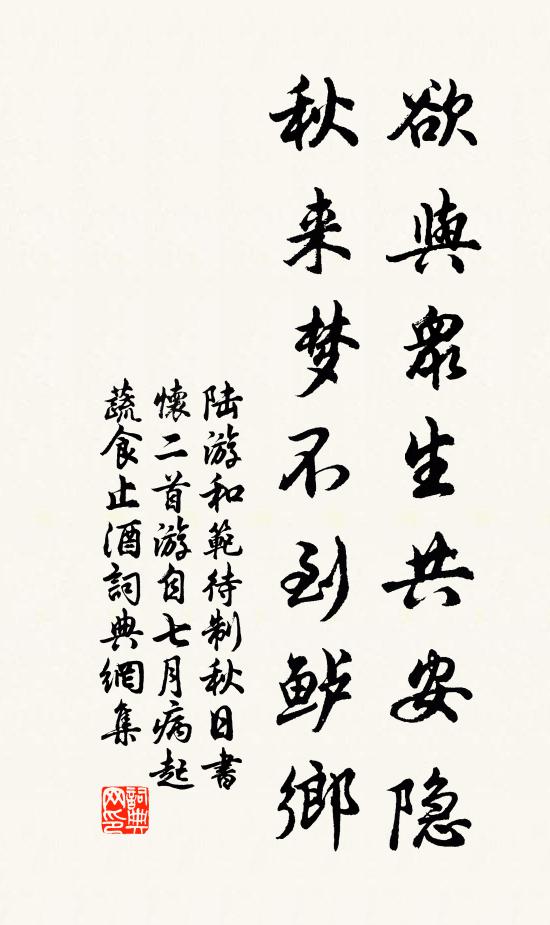 欲與衆生共安隐
秋来梦不到鲈鄉
陆游和範待制秋日書
懷二首游自七月病起
蔬食止酒詞典網集
詞典
网印